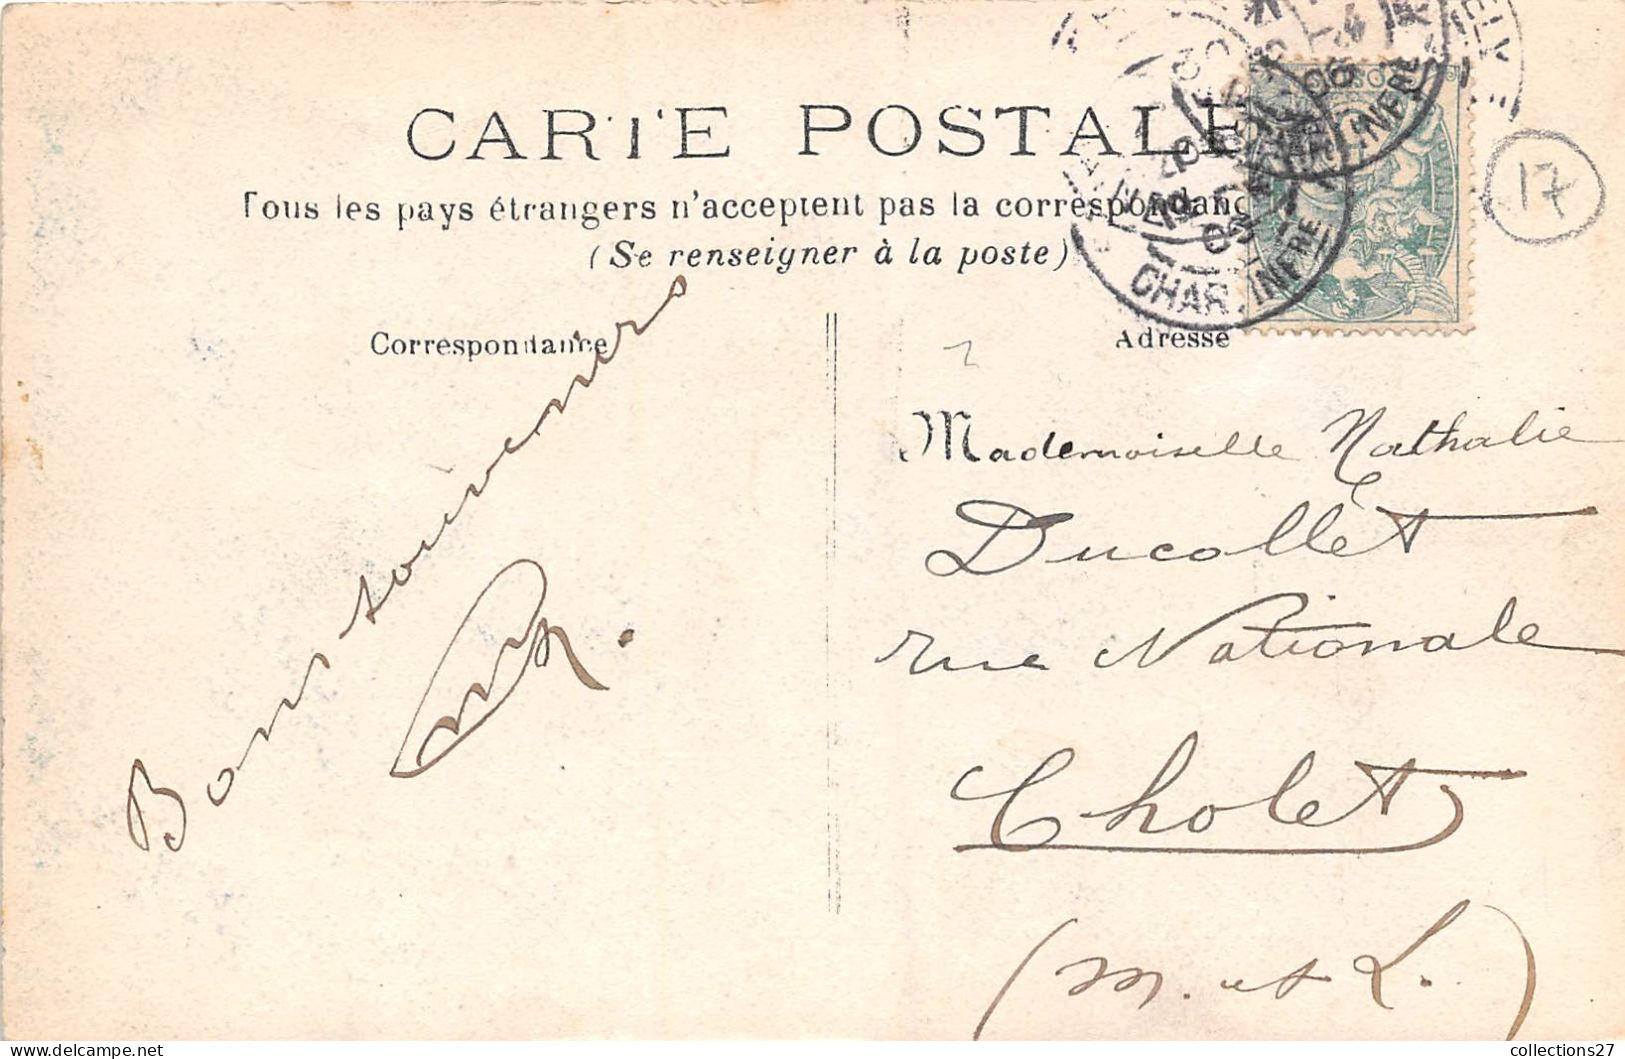 CARTE POSTALE
Tous les pays étrangers n'acceptent pas la correspondance
(Se renseigner à la poste)
CHAR INFRE
17
Correspondance
Adresse
Bons souvenirs
Mademoiselle Nathalie
Ducollet
rue Nationale
Cholet
(M. et L.)
collections27